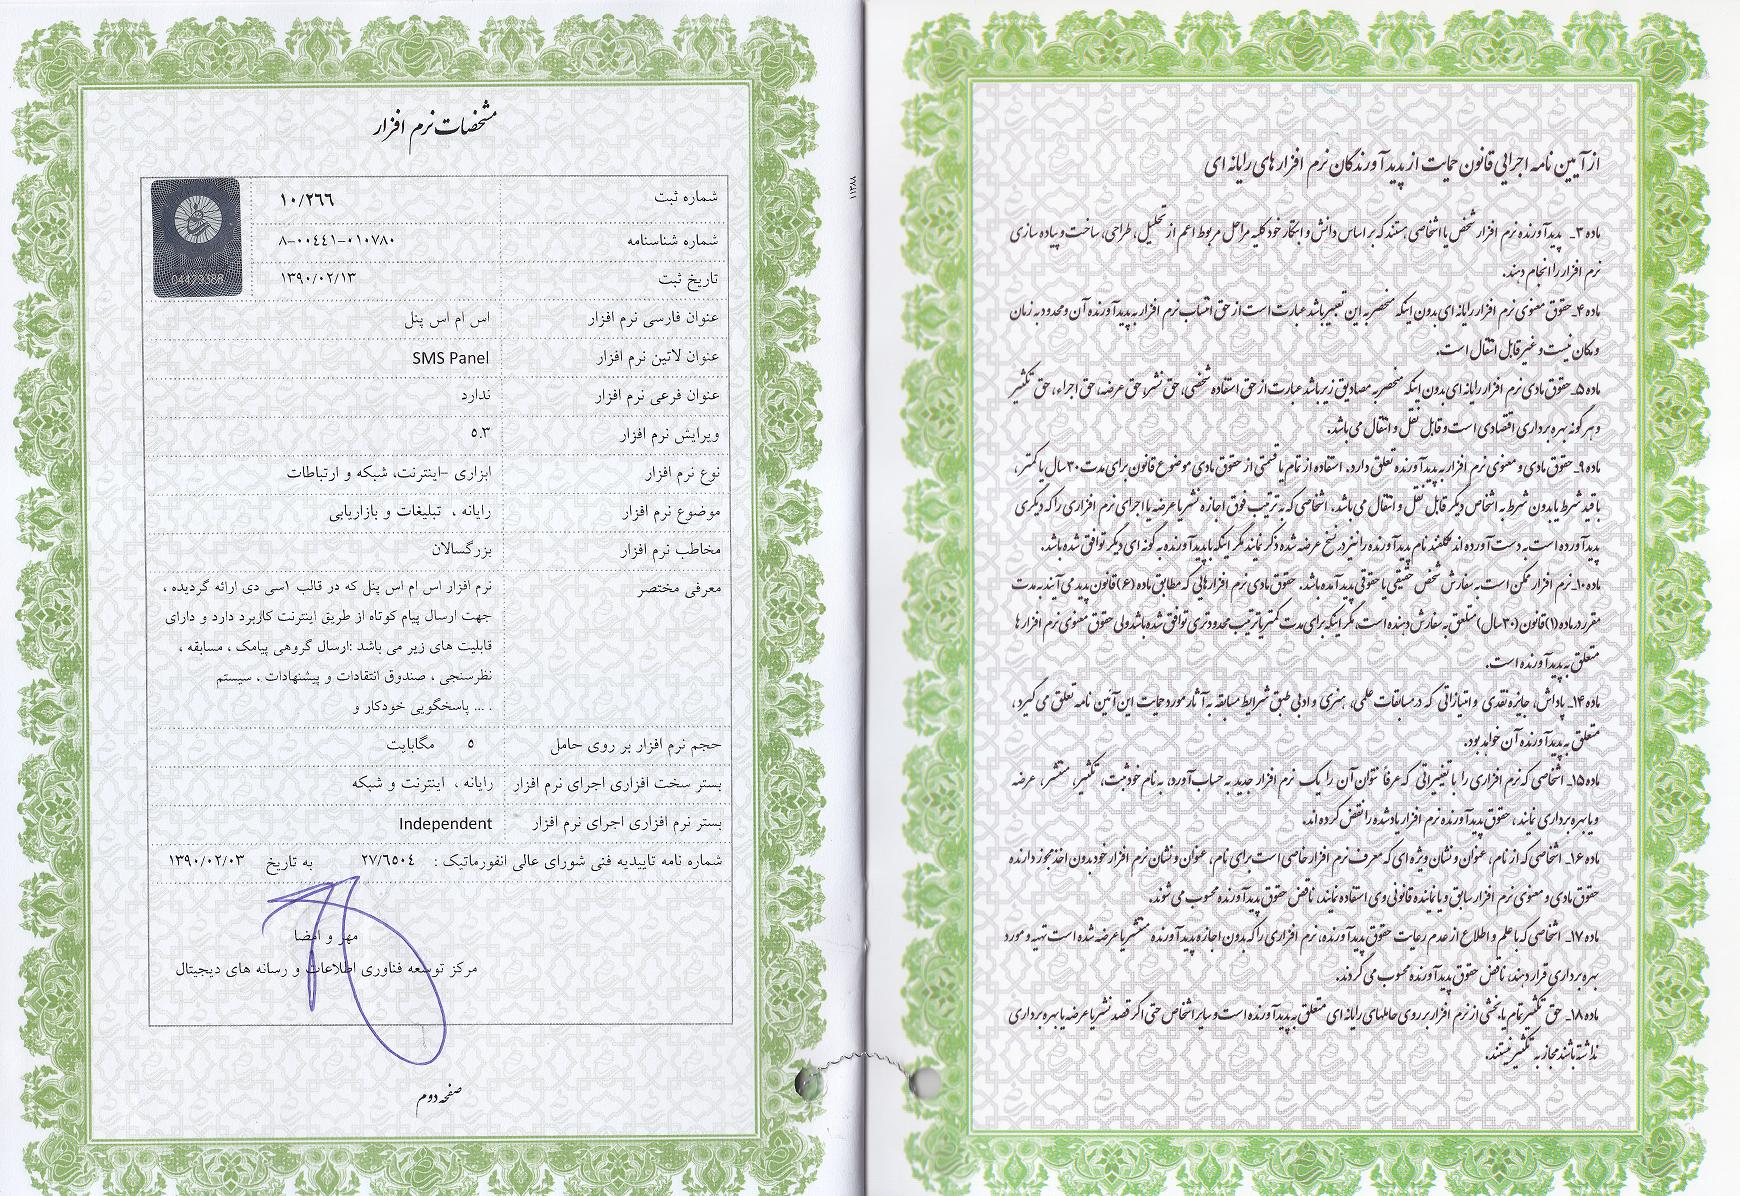 مشخصات نرم افزار
شماره ثبت ۱۰/۲۶۶
شماره شناسنامه ۸-۰۰٤٤۱-۰۱۰۷۸۰
تاریخ ثبت ۱۳۹۰/۰۲/۱۳
04423388
عنوان فارسی نرم افزار اس ام اس پنل
عنوان لاتین نرم افزار SMS Panel
عنوان فرعی نرم افزار ندارد
ویرایش نرم افزار ۵.۳
نوع نرم افزار ابزاری -اینترنت، شبکه و ارتباطات
موضوع نرم افزار رایانه ، تبلیغات و بازاریابی
مخاطب نرم افزار بزرگسالان
معرفی مختصر نرم افزار اس ام اس پنل که در قالب ۱سی دی ارائه گردیده ،
جهت ارسال پیام کوتاه از طریق اینترنت کاربرد دارد و دارای
قابلیت های زیر می باشد :ارسال گروهی پیامک ، مسابقه ،
نظرسنجی ، صندوق انتقادات و پیشنهادات ، سیستم
پاسخگویی خودکار و ... .
حجم نرم افزار بر روی حامل ۵ مگابایت
بستر سخت افزاری اجرای نرم افزار رایانه ، اینترنت و شبکه
بستر نرم افزاری اجرای نرم افزار Independent
شماره نامه تاییدیه فنی شورای عالی انفورماتیک : ۲۷/٦۵۰٤ به تاریخ ۱۳۹۰/۰۲/۰۳
مهر و امضا
مرکز توسعه فناوری اطلاعات و رسانه های دیجیتال
صفحه دوم
۱۱۳۸۸
از آیین نامه اجرایی قانون حمایت از پدیدآورندگان نرم افزارهای رایانه ای
ماده ۳ـ پدیدآورنده نرم افزار شخص یا اشخاصی هستند که بر اساس دانش و ابتکار خود کلیه مراحل مربوط اعم از تحلیل، طراحی، ساخت و پیاده سازی
نرم افزار را انجام دهند.
ماده ۴ـ حقوق معنوی نرم افزار رایانه ای بدون اینکه منحصر به این تعبیر باشد عبارت است از حق انتساب نرم افزار به پدیدآورنده آن و محدود به زمان
و مکان نیست و غیرقابل انتقال است.
ماده ۵ـ حقوق مادی نرم افزار رایانه ای بدون اینکه منحصر به مصادیق زیر باشد عبارت است از حق استفاده شخصی، حق نشر، حق عرضه، حق اجراء، حق تکثیر
و هرگونه بهره برداری اقتصادی است و قابل نقل و انتقال می باشد.
ماده ۹ـ حقوق مادی و معنوی نرم افزار به پدیدآورنده تعلق دارد. استفاده از تمام یا قسمتی از حقوق مادی موضوع قانون برای مدت ۳۰ سال یا کمتر،
با قید شرط یا بدون شرط به اشخاص دیگر قابل نقل و انتقال می باشد. اشخاصی که به ترتیب فوق اجازه نشر یا عرضه یا اجرای نرم افزاری را که دیگری
پدید آورده است به دست آورده اند مکلفند نام پدیدآورنده را نیز در نسخ عرضه شده ذکر نمایند مگر اینکه با پدیدآورنده به گونه ای دیگر توافق شده باشد.
ماده ۱۰ـ نرم افزار ممکن است به سفارش شخص حقیقی یا حقوقی پدید آمده باشد. حقوق مادی نرم افزارهایی که مطابق ماده (۶) قانون پدید می آیند به مدت
مقرر در ماده (۱) قانون (۳۰ سال) متعلق به سفارش دهنده است، مگر اینکه برای مدت کمتر یا ترتیب محدودتری توافق شده باشد ولی حقوق معنوی نرم افزارها
متعلق به پدیدآورنده است.
ماده ۱۴ـ پاداش، جایزه نقدی و امتیازاتی که در مسابقات علمی، هنری و ادبی طبق شرایط مسابقه به آثار مورد حمایت این آئین نامه تعلق می گیرد،
متعلق به پدیدآورنده آن خواهد بود.
ماده ۱۵ـ اشخاصی که نرم افزاری را با تغییراتی که عرفاً نتوان آن را یک نرم افزار جدید به حساب آورد، به نام خود ثبت، تکثیر، منتشر، عرضه
و یا بهره برداری نمایند، حقوق پدیدآورنده نرم افزار یاد شده را نقض کرده اند.
ماده ۱۶ـ اشخاصی که از نام، عنوان و نشان ویژه ای که معرف نرم افزار خاصی است برای نام، عنوان و نشان نرم افزار خود بدون اخذ مجوز دارنده
حقوق مادی و معنوی نرم افزار سابق و یا نماینده قانونی وی استفاده نمایند، ناقض حقوق پدیدآورنده محسوب می شوند.
ماده ۱۷ـ اشخاصی که با علم و اطلاع از عدم رعایت حقوق پدیدآورنده، نرم افزاری را که بدون اجازه پدیدآورنده منتشر یا عرضه شده است تهیه و مورد
بهره برداری قرار دهند، ناقض حقوق پدیدآورنده محسوب می گردند.
ماده ۱۸ـ حق تکثیر تمام یا بخشی از نرم افزار بر روی حاملهای رایانه ای متعلق به پدیدآورنده است و سایر اشخاص حتی اگر قصد نشر یا عرضه یا بهره برداری
نداشته باشند مجاز به تکثیر نیستند.